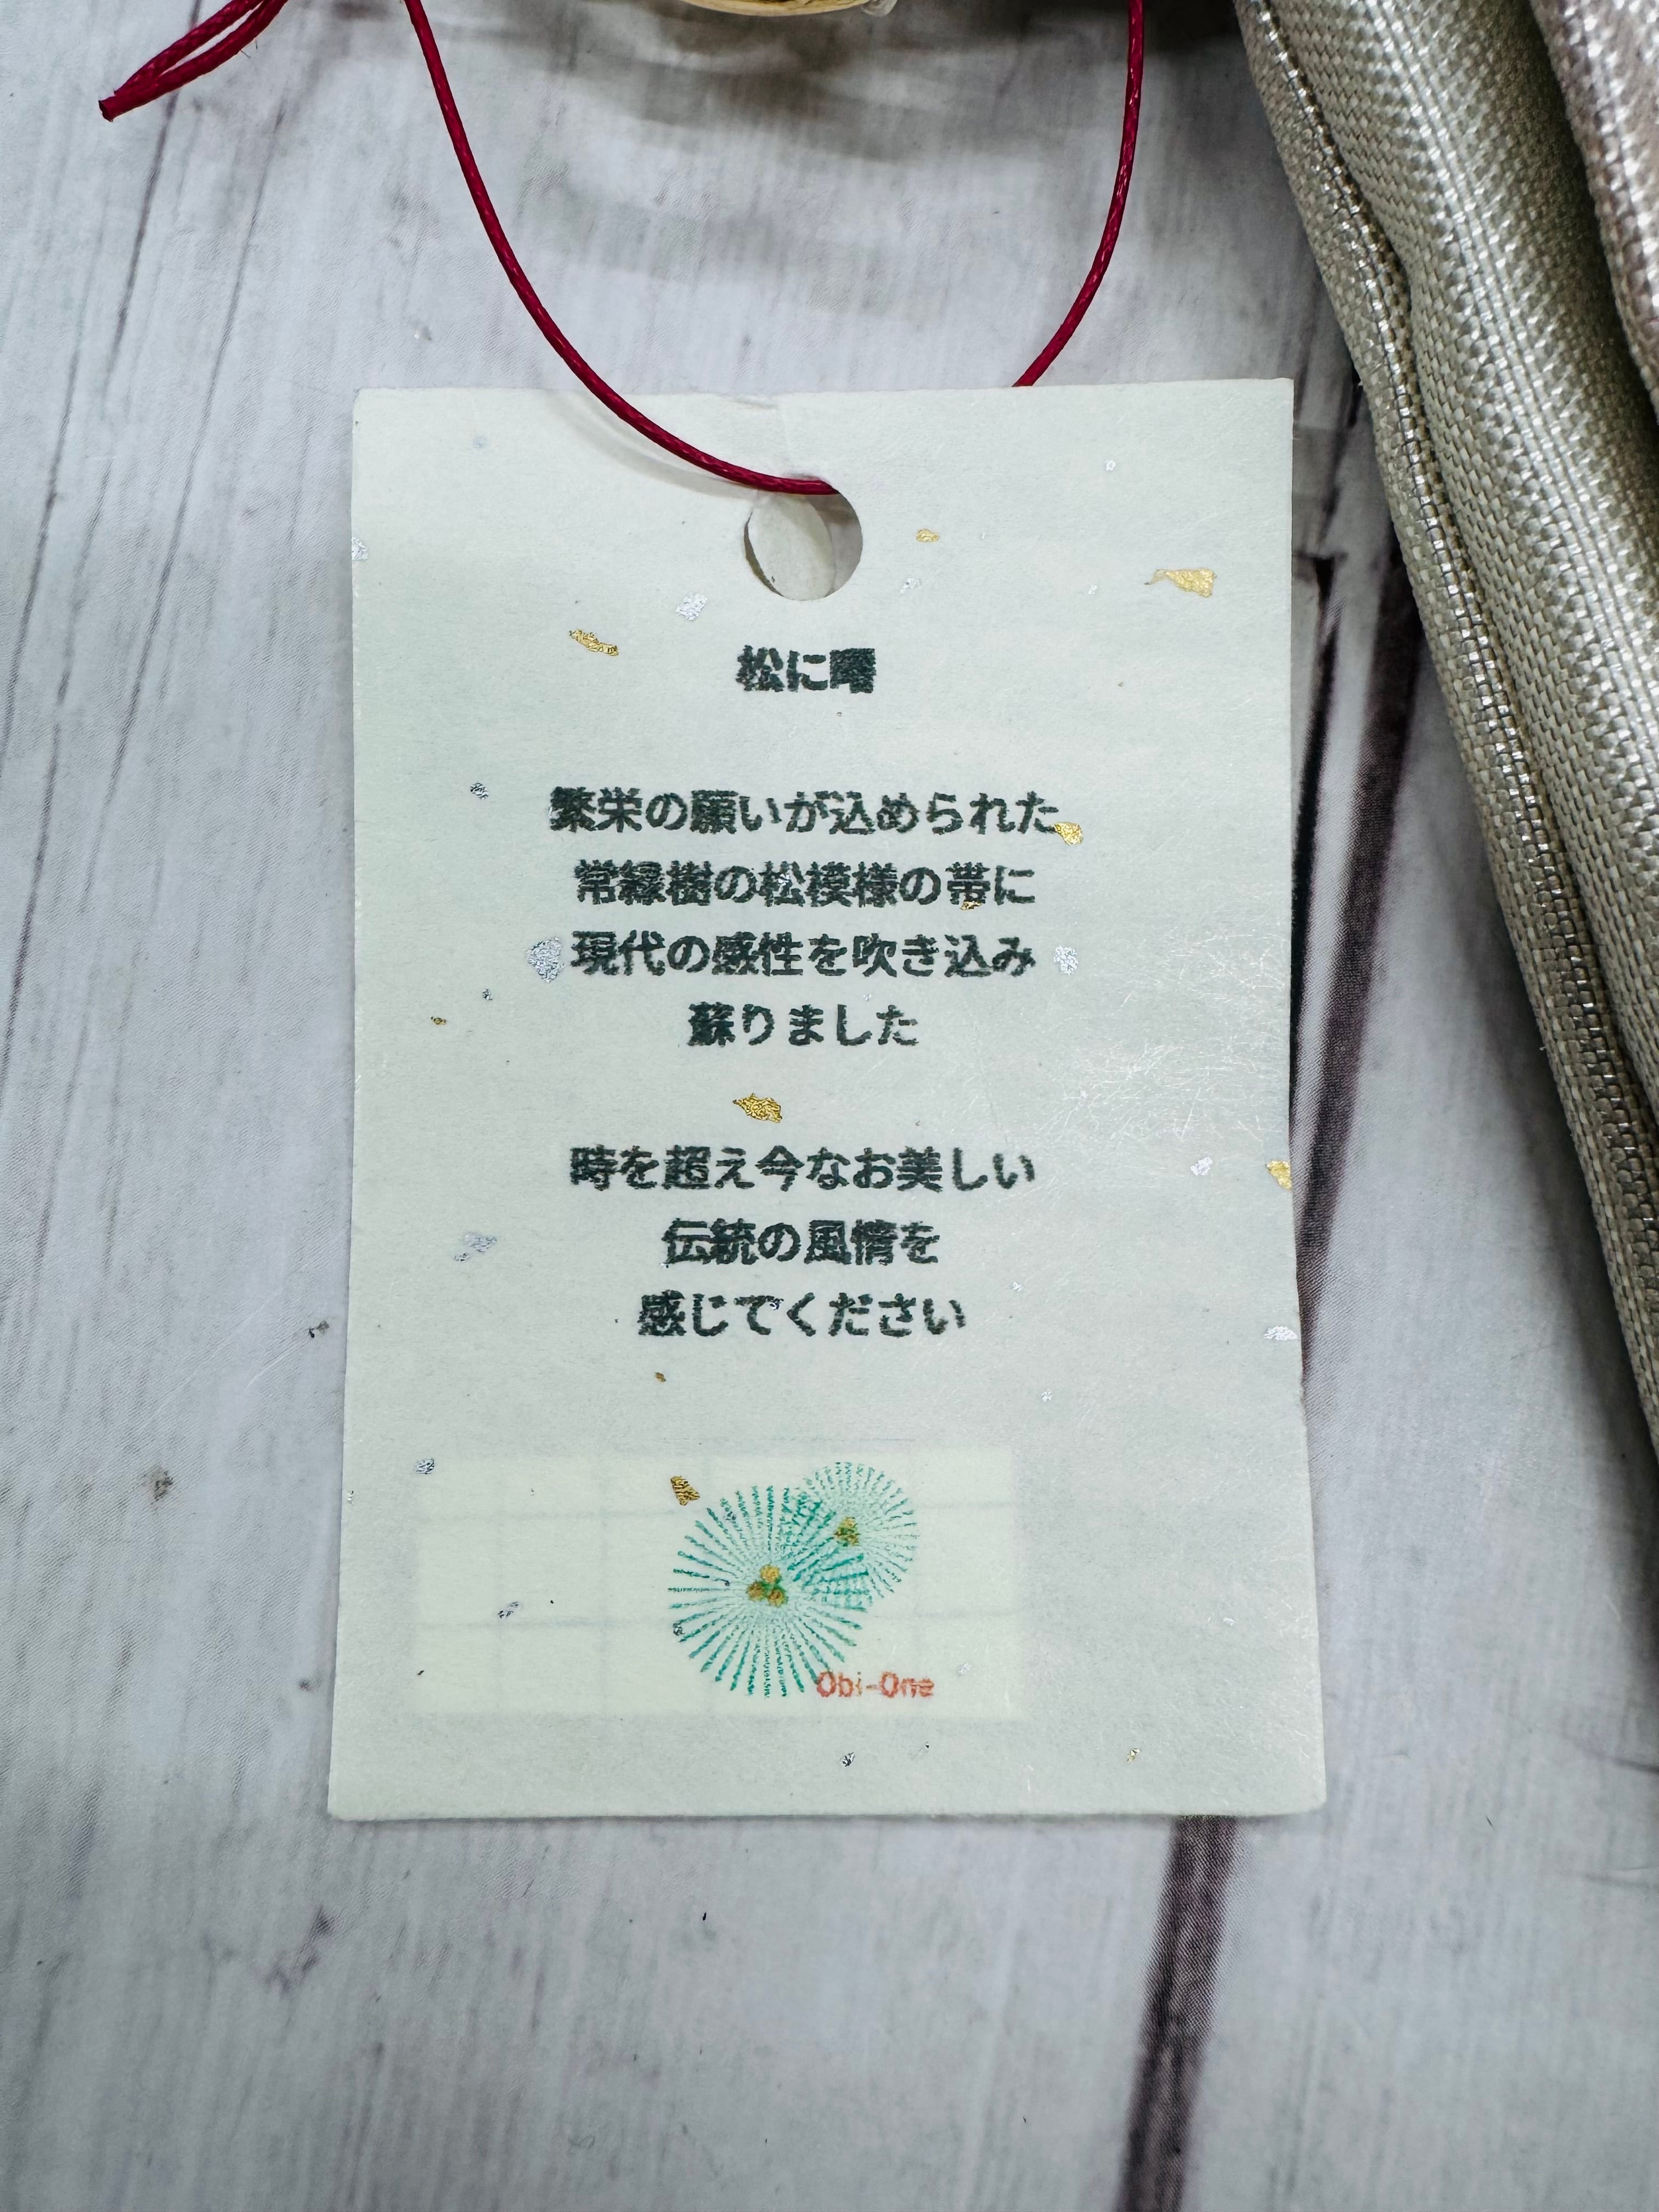 松に曙
繁栄の願いが込められた
常緑樹の松模様の帯に
現代の感性を吹き込み
蘇りました
時を超え今なお美しい
伝統の風情を
感じてください
Obi-One